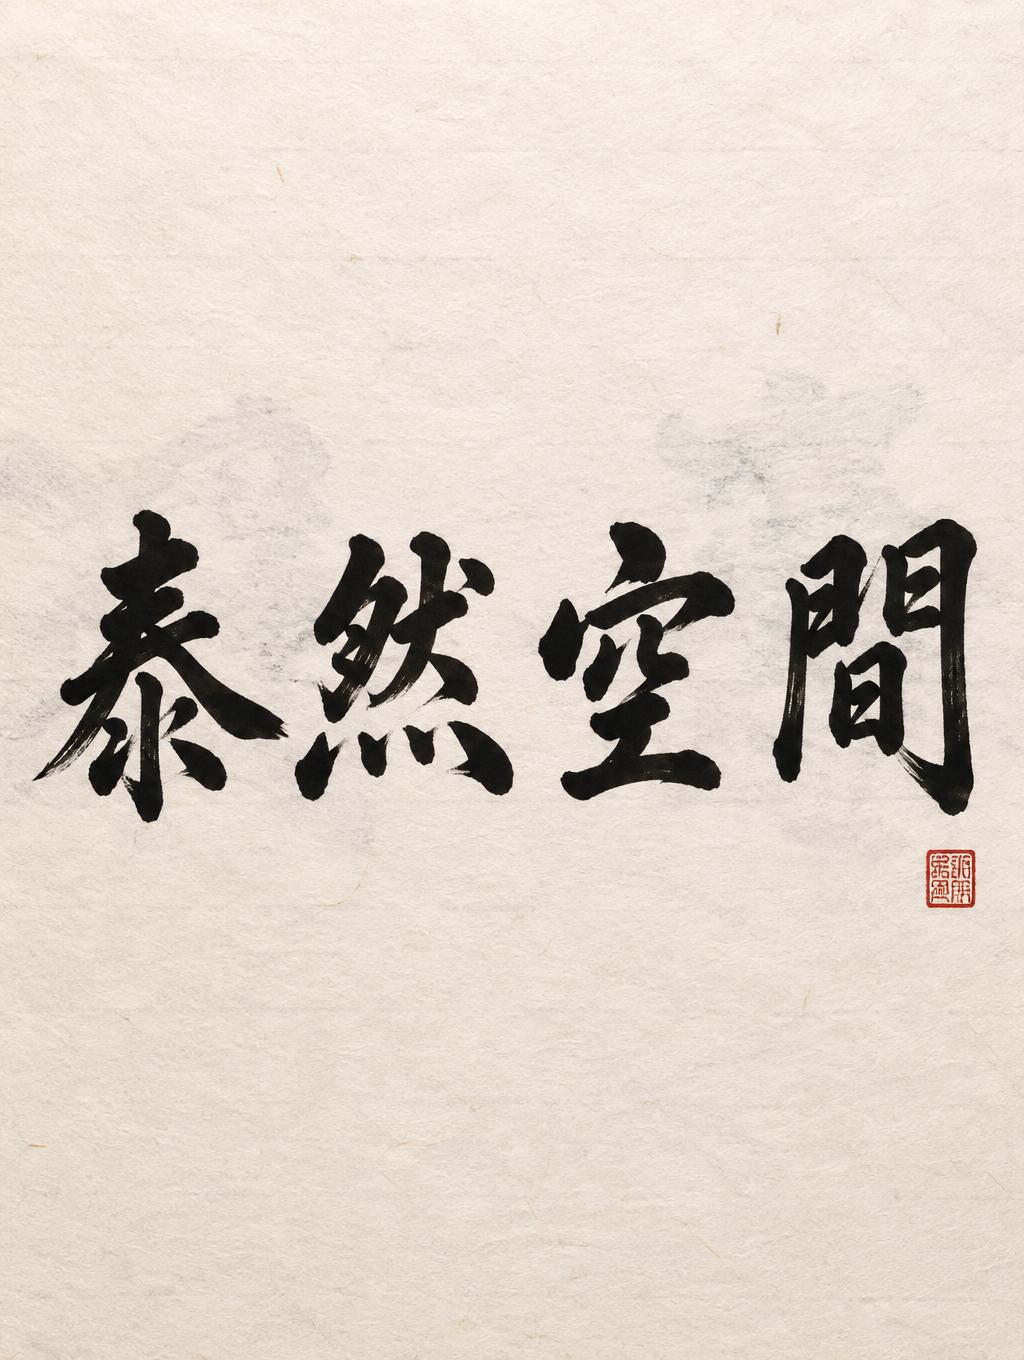 泰然空間